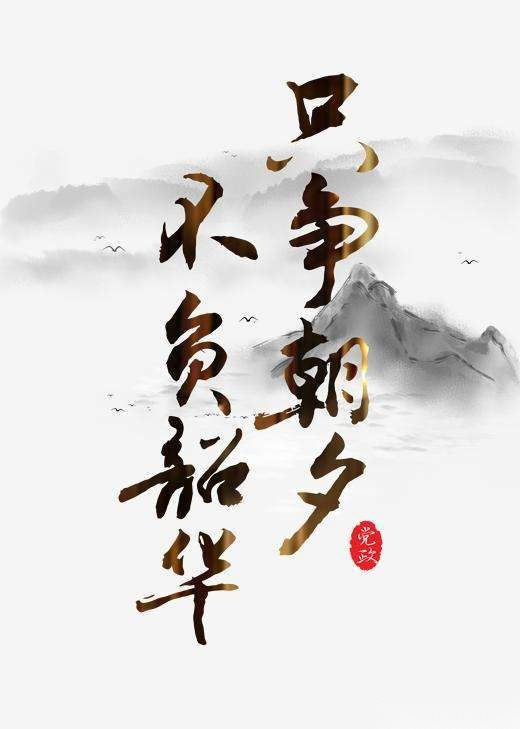 只争朝夕
不负韶华
党政